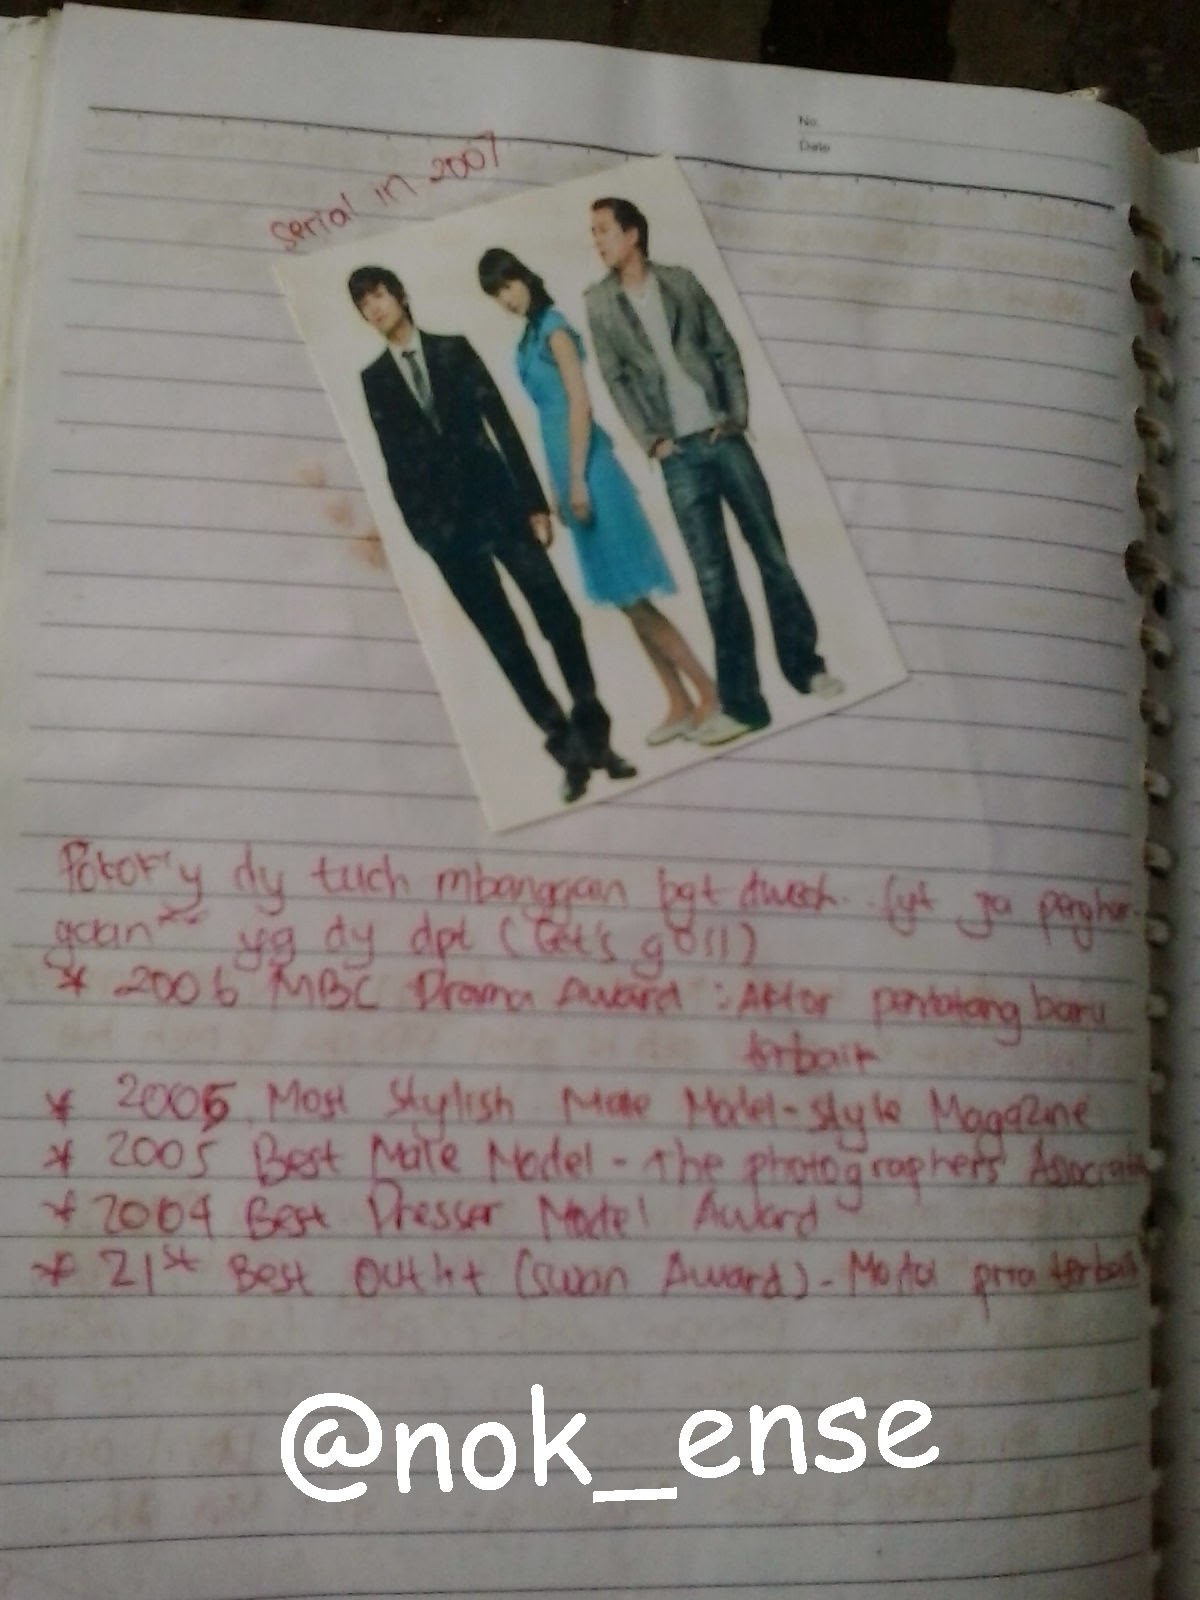 No.
Date
Serial in 2007
Pokok'y dy tuch mbanggan bgt dwech.. (yt ja penghar-
gaan yg dy dpt (Let's go!!)
* 2006 MBC Drama Award : Aktor pendatang baru
terbaik
* 2005 Most Stylish Male Model - Style Magazine
* 2005 Best Male Model - The photographers Associati
* 2004 Best Dresser Model Award
* 21st Best Outfit (Swan Award) - Model pria terbaik
@nok_ense